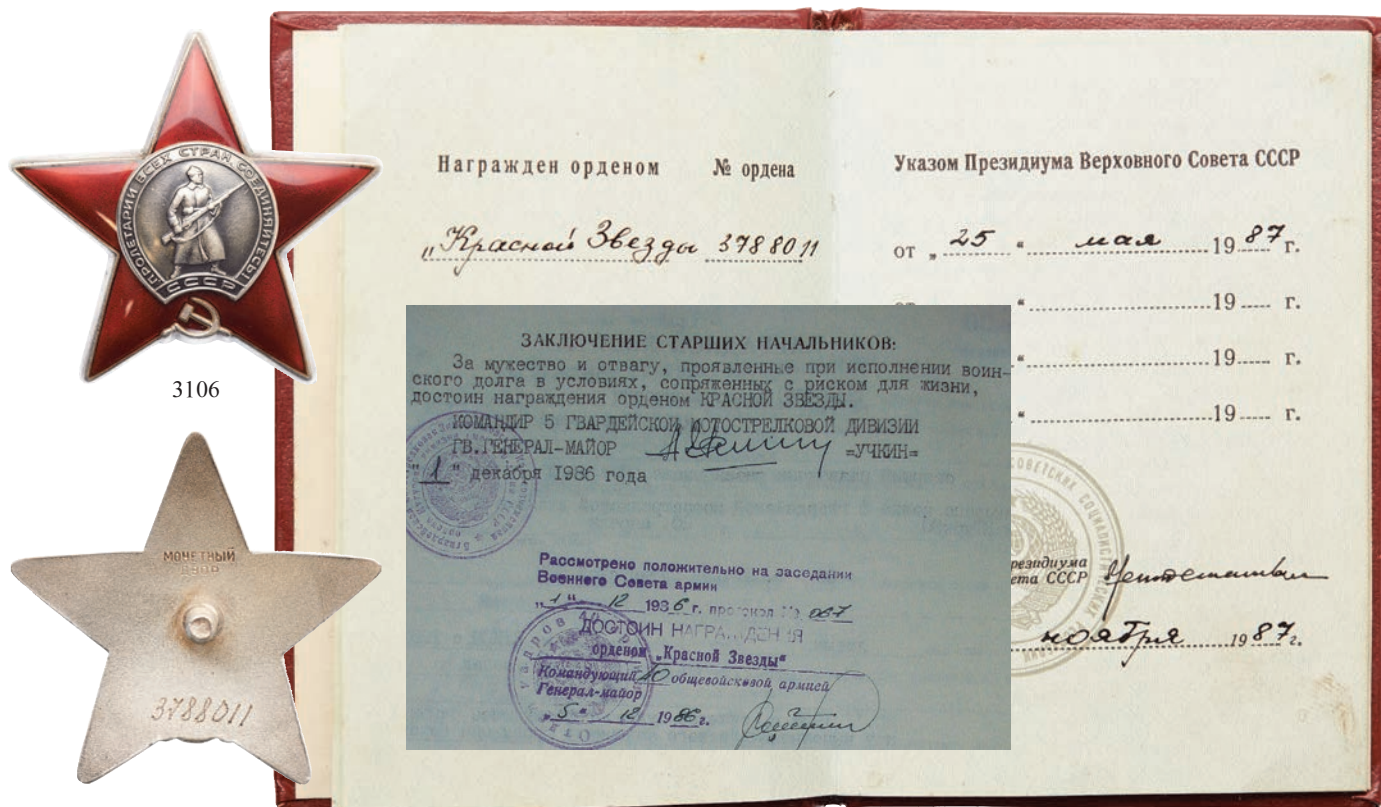 ПРОЛЕТАРИИ ВСЕХ СТРАН, СОЕДИНЯЙТЕСЬ!
СССР
3106
МОНЕТНЫЙ
ДВОР
3788011
Награжден орденом № ордена
„Красной Звезды 3788011
Указом Президиума Верховного Совета СССР
от „ 25 “ мая 19 87 г.
от “ 19 г.
“ 19 г.
“ 19 г.
ЗАКЛЮЧЕНИЕ СТАРШИХ НАЧАЛЬНИКОВ:
За мужество и отвагу, проявленные при исполнении воин-
ского долга в условиях, сопряженных с риском для жизни,
достоин награждения орденом КРАСНОЙ ЗВЕЗДЫ.
КОМАНДИР 5 ГВАРДЕЙСКОЙ МОТОСТРЕЛКОВОЙ ДИВИЗИИ
ГВ.ГЕНЕРАЛ-МАЙОР =УЧКИН=
"1" декабря 1986 года
Рассмотрено положительно на заседании
Военного Совета армии
„1“ 12 1986 г. протокол № 067
ДОСТОИН НАГРАЖДЕНИЯ
орденом „Красной Звезды“
Командующий 40 общевойсковой армией
Генерал-майор
„5“ 12 1986 г.
СОВЕТСКИХ СОЦИАЛИСТИЧЕСКИХ
резидиума
ета СССР
ноября 1987 г.